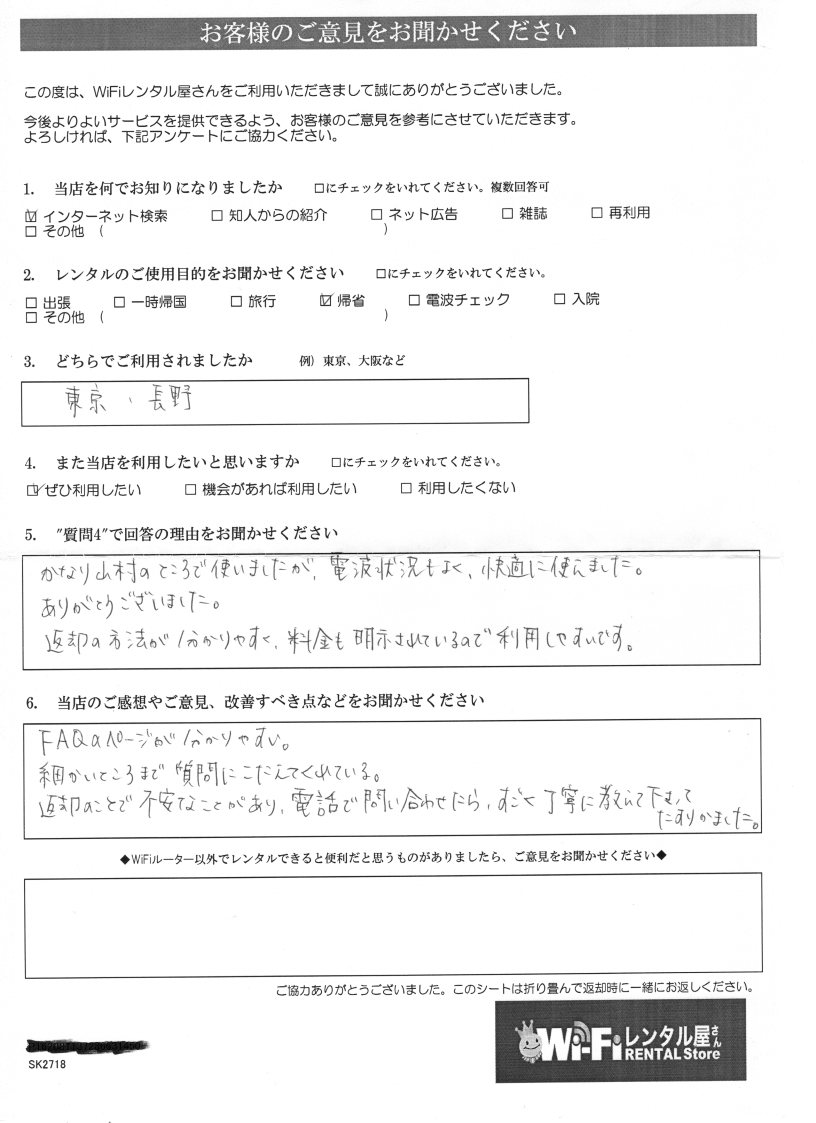 お客様のご意見をお聞かせください
この度は、WiFiレンタル屋さんをご利用いただきまして誠にありがとうございました。
今後よりよいサービスを提供できるよう、お客様のご意見を参考にさせていただきます。
よろしければ、下記アンケートにご協力ください。
1. 当店を何でお知りになりましたか □にチェックをいれてください。複数回答可
☑ インターネット検索 □ 知人からの紹介 □ ネット広告 □ 雑誌 □ 再利用
□ その他 ( )
2. レンタルのご使用目的をお聞かせください □にチェックをいれてください。
□ 出張 □ 一時帰国 □ 旅行 ☑ 帰省 □ 電波チェック □ 入院
□ その他 ( )
3. どちらでご利用されましたか 例）東京、大阪など
東京、長野
4. また当店を利用したいと思いますか □にチェックをいれてください。
☑ ぜひ利用したい □ 機会があれば利用したい □ 利用したくない
5. ”質問4”で回答の理由をお聞かせください
かなり山村のところで使いましたが、電波状況もよく、快適に使えました。
ありがとうございました。
返却の方法が分かりやすく、料金も明示されているので利用しやすいです。
6. 当店のご感想やご意見、改善すべき点などをお聞かせください
FAQのページが分かりやすい。
細かいところまで質問にこたえてくれている。
返却のことで不安なことがあり、電話で問い合わせたら、すごく丁寧に教えて下さって
たすかりました。
◆WiFiルーター以外でレンタルできると便利だと思うものがありましたら、ご意見をお聞かせください◆
ご協力ありがとうございました。このシートは折り畳んで返却時に一緒にお返しください。
Wi-Fiレンタル屋さん
RENTAL Store
SK2718